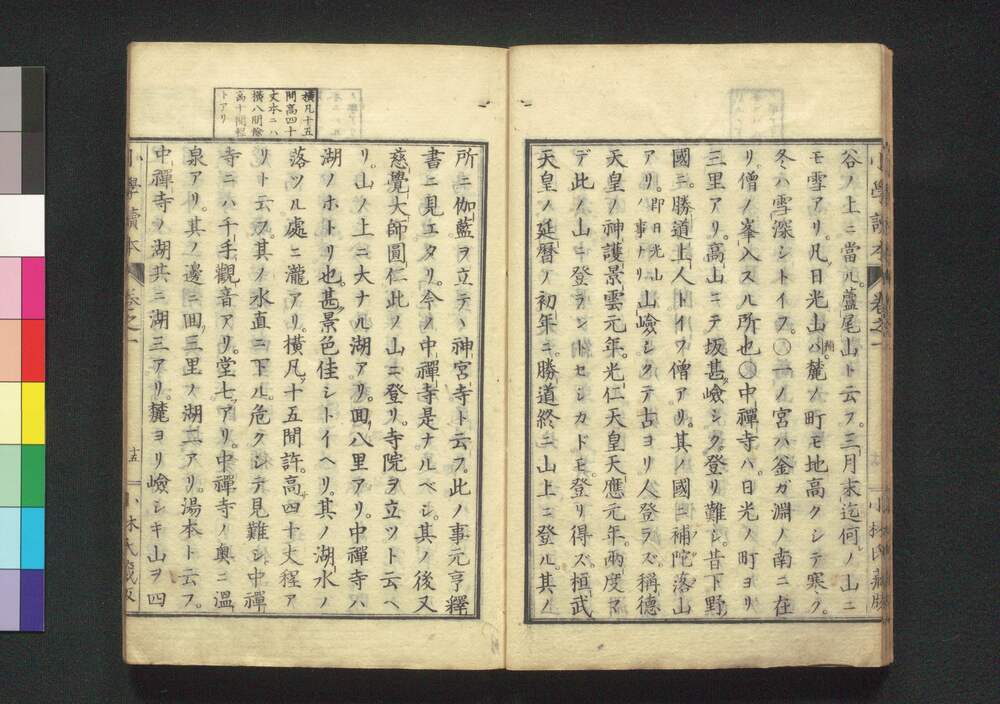 谷ノ上ニ當ル。蘆尾山ト云フ。三月末迄何ノ山ニ
モ雪アリ。凡ソ日光山ハ麓ノ町モ地高クシテ寒ク。
冬ハ雪深シトイフ。〇一ノ宮ハ釜ガ淵ノ南ニ在
リ。僧ノ峯入スル所也。〇中禪寺ハ。日光ノ町ヨリ
三里アリ。高山ニテ坂甚嶮シク登リ難シ。昔下野ノ
國ニ。勝道上人トイフ僧アリ。其ノ國ニ補陀落山
アリ。即日光山ノ事ナリ。山嶮シクテ古ヨリ人登ラズ。稱德
天皇ノ神護景雲元年。光仁天皇天應元年。兩度マ
デ此ノ山ニ登ラントセシカドモ。登リ得ズ。桓武
天皇ノ延暦ノ初年ニ。勝道終ニ山上ニ登ル。其ノ
小學讀本 卷之一 小林氏藏版
所ニ伽藍ヲ立テヽ神宮寺ト云フ。此ノ事元亨釋
書ニ見エタリ。今ノ中禪寺是ナルベシ。其ノ後又
慈覺大師圓仁此ノ山ニ登リ。寺院ヲ立ツト云ヘ
リ。山ノ上ニ大ナル湖アリ。囬八里アリ。中禪寺ハ
湖ノホトリ也。甚景色佳シトイヘリ。其ノ湖水ノ
落ツル處ニ瀧アリ。橫凡十五間許。高サ四十丈程ア
リト云フ。其ノ水直ニ下ル。危クシテ見難シ。中禪
寺ニハ千手觀音アリ。堂七ツアリ。中禪寺ノ奥ニ溫
泉アリ。其ノ邊ニ囬三里ノ湖二アリ。湯本ト云フ。
中禪寺ノ湖共ニ湖三アリ。麓ヨリ嶮シキ山ヲ四
橫凡十五
間高四十
丈本ニハ
橫八間餘
高十間程
トアリ
小學讀本 卷之一 十五 小林氏藏版